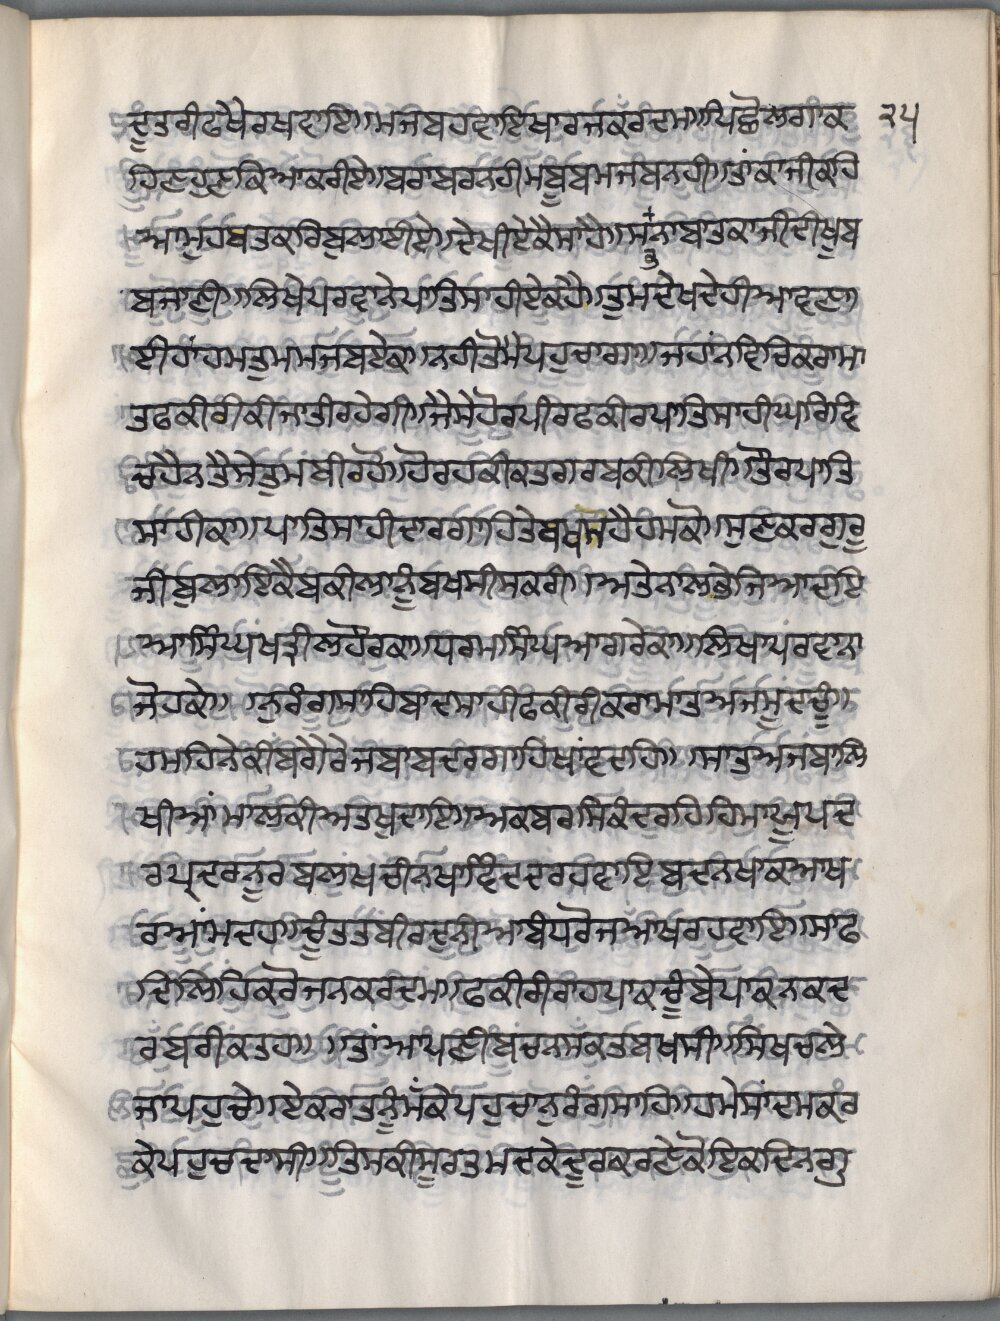 ਦੂੰਤਗੀਫਖੈਰਖਵਾਇ।ਮਜਬਹਵਾਇਖਾਰਜਕਰਦਮ।ਪਿਛੌਲਗਾਕ ੨੫
ਹਿਣਹੁਣਕਿਆਕਰੀਏ।ਬਰਾਬਰਨਹੀਮਬੂਬਮਜਬਨਹੀ।ਤਾਂਕਾਜੀਕਹਿ
ਆਮੁਹਬਤਕਰਿਬੁਲਾਈਏ।ਦੇਖੀਏਕੈਸਾਹੈ।ਸੁੰਨਾਬਾਤਕਾਜੀਦੀਖੂਬ
ਬਜਾਣੀ।ਲਿਖੇਪਰਵਾਨੇਪਾਤਿਸਾਹੀਏਕਹੈ।ਤੁਮਦੇਖਦੇਹੀਆਵਣਾ
ਈਹਾਂਹਮਤੁਮਾਮਜਬਏਕ।ਨਹੀਤੋਮੈਪਹੁਚਾਗਾ।ਜਹਾਂਨਵਿਚਿਕਰਾਮਾ
ਤਫਕੀਰੀਕੀਜਾਤੀਰਹੇਗੀ।ਜੈਸੇਹੋਰਪੀਰਫਕੀਰਪਾਤਿਸਾਹੀਘਰਿਵਿ
ਚਹੈਨਤੈਸੇਤੁਮਬੀਰਹੋ।ਹੋਰਹਕੀਕਤਗਰਬਕੀਲਿਖੀ।ਤੌਰਪਾਤਿ
ਸਾਹੀਕਾ।ਪਾਤਿਸਾਹੀਦਾਰਗਾਹਿਤੇਬਖਸਹੈਹਮਕੋ।ਸੁਣਕਰਗੁਰੂ
ਜੀਬੁਲਾਇਕੈਬਕੀਲਾਨੂੰਬਖਸੀਸਕਰੀ।ਅਤੇਨਾਲਭੇਜਿਆਦਇ
ਆਸਿੰਘਖਤ੍ਰੀਲਹੌਰਕਾ।ਧਰਮਸਿੰਘਆਗਰੇਕਾ।ਲਿਖਾਪਰਵਾਨਾ
ਜੋਹਕੇ।ਨੁਰੰਗਸਾਹਿਬਾਦਸਾਹੀਫਕੀਰੀਕਰਾਮਾਤਅਜਮੂਦਚੂੰ।
ਹਮਹਿਨੇਕੀਬਗੈਰੈਜਬਾਬਦਰਗਾਹਿਖਾਂਵਦਾਹਿ।ਸਾਤੁਅਜਬਾਲਿ
ਖੀਆਂਮਾਲਕੀਅਤਖੁਦਾਇ।ਅਕਬਰਸਿਕੰਦਰਹਿਹਿਮਾਯੂਪਦ
ਰਪ੍ਦਰਨੂਰਬਲਖਚੀਨਖਾਵਿੰਦਦਰਹਵਾਇਬੁਦਨਖਾਕਆਖ
ਰਆਂਮਦਹ।ਚੂੰਤਤਬੀਰਦੁਨੀਆਬੇਪਰੋਜਆਖਰਹਵਾਇ।ਸਾਫ
ਦਿਲਿਹਿਕਰੋਜਨਕਰਦਮ।ਫਕੀਰੀਰਾਹਪਾਕਚੂੰਬੇਪਾਕਨਕਦ
ਰੁਬਰੀਕਤਹ।।ਤਾਂਆਪਣੀਬੁਚਨਸਕਤਬਖਸੀ।ਸਿਖਚਲੇ
ਜਾਪਹੁਚੇ।ਏਕਰਾਤਨੂੰਮੱਕੇਪਹੁਚਾਨੁਰੰਗਸਾਹਿ।ਹਮੇਸਾਂਦਮਕਰ
ਕੇਪਹੁਚਦਾਸੀ।ਤਿਸਕੀਸੂਰਤਮਦਕੇਦੂਰਕਰਣੇਕੋਇਕਦਿਨਗੁ